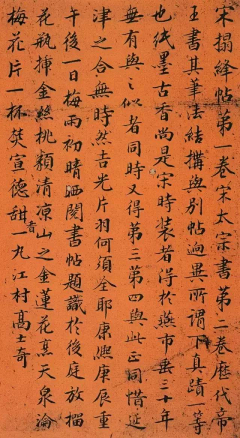 宋搨絳帖第一卷宋太宗書第二卷歷代帝
王書其筆法結搆與別帖迥異所謂下真蹟一等
也紙墨古香尚是宋時裝者得於燕市垂三十年
無有與之似者同時又得第三第四與此正同惜延
津之合無時然吉光片羽何須全耶康熙庚辰重
午後一日梅雨初晴晒閱書帖題識於後庭放榴
花瓶揷金絲桃纇清涼山之金蓮花烹天泉瀹
梅花片一杯焚宣德甜香一九江村高士奇